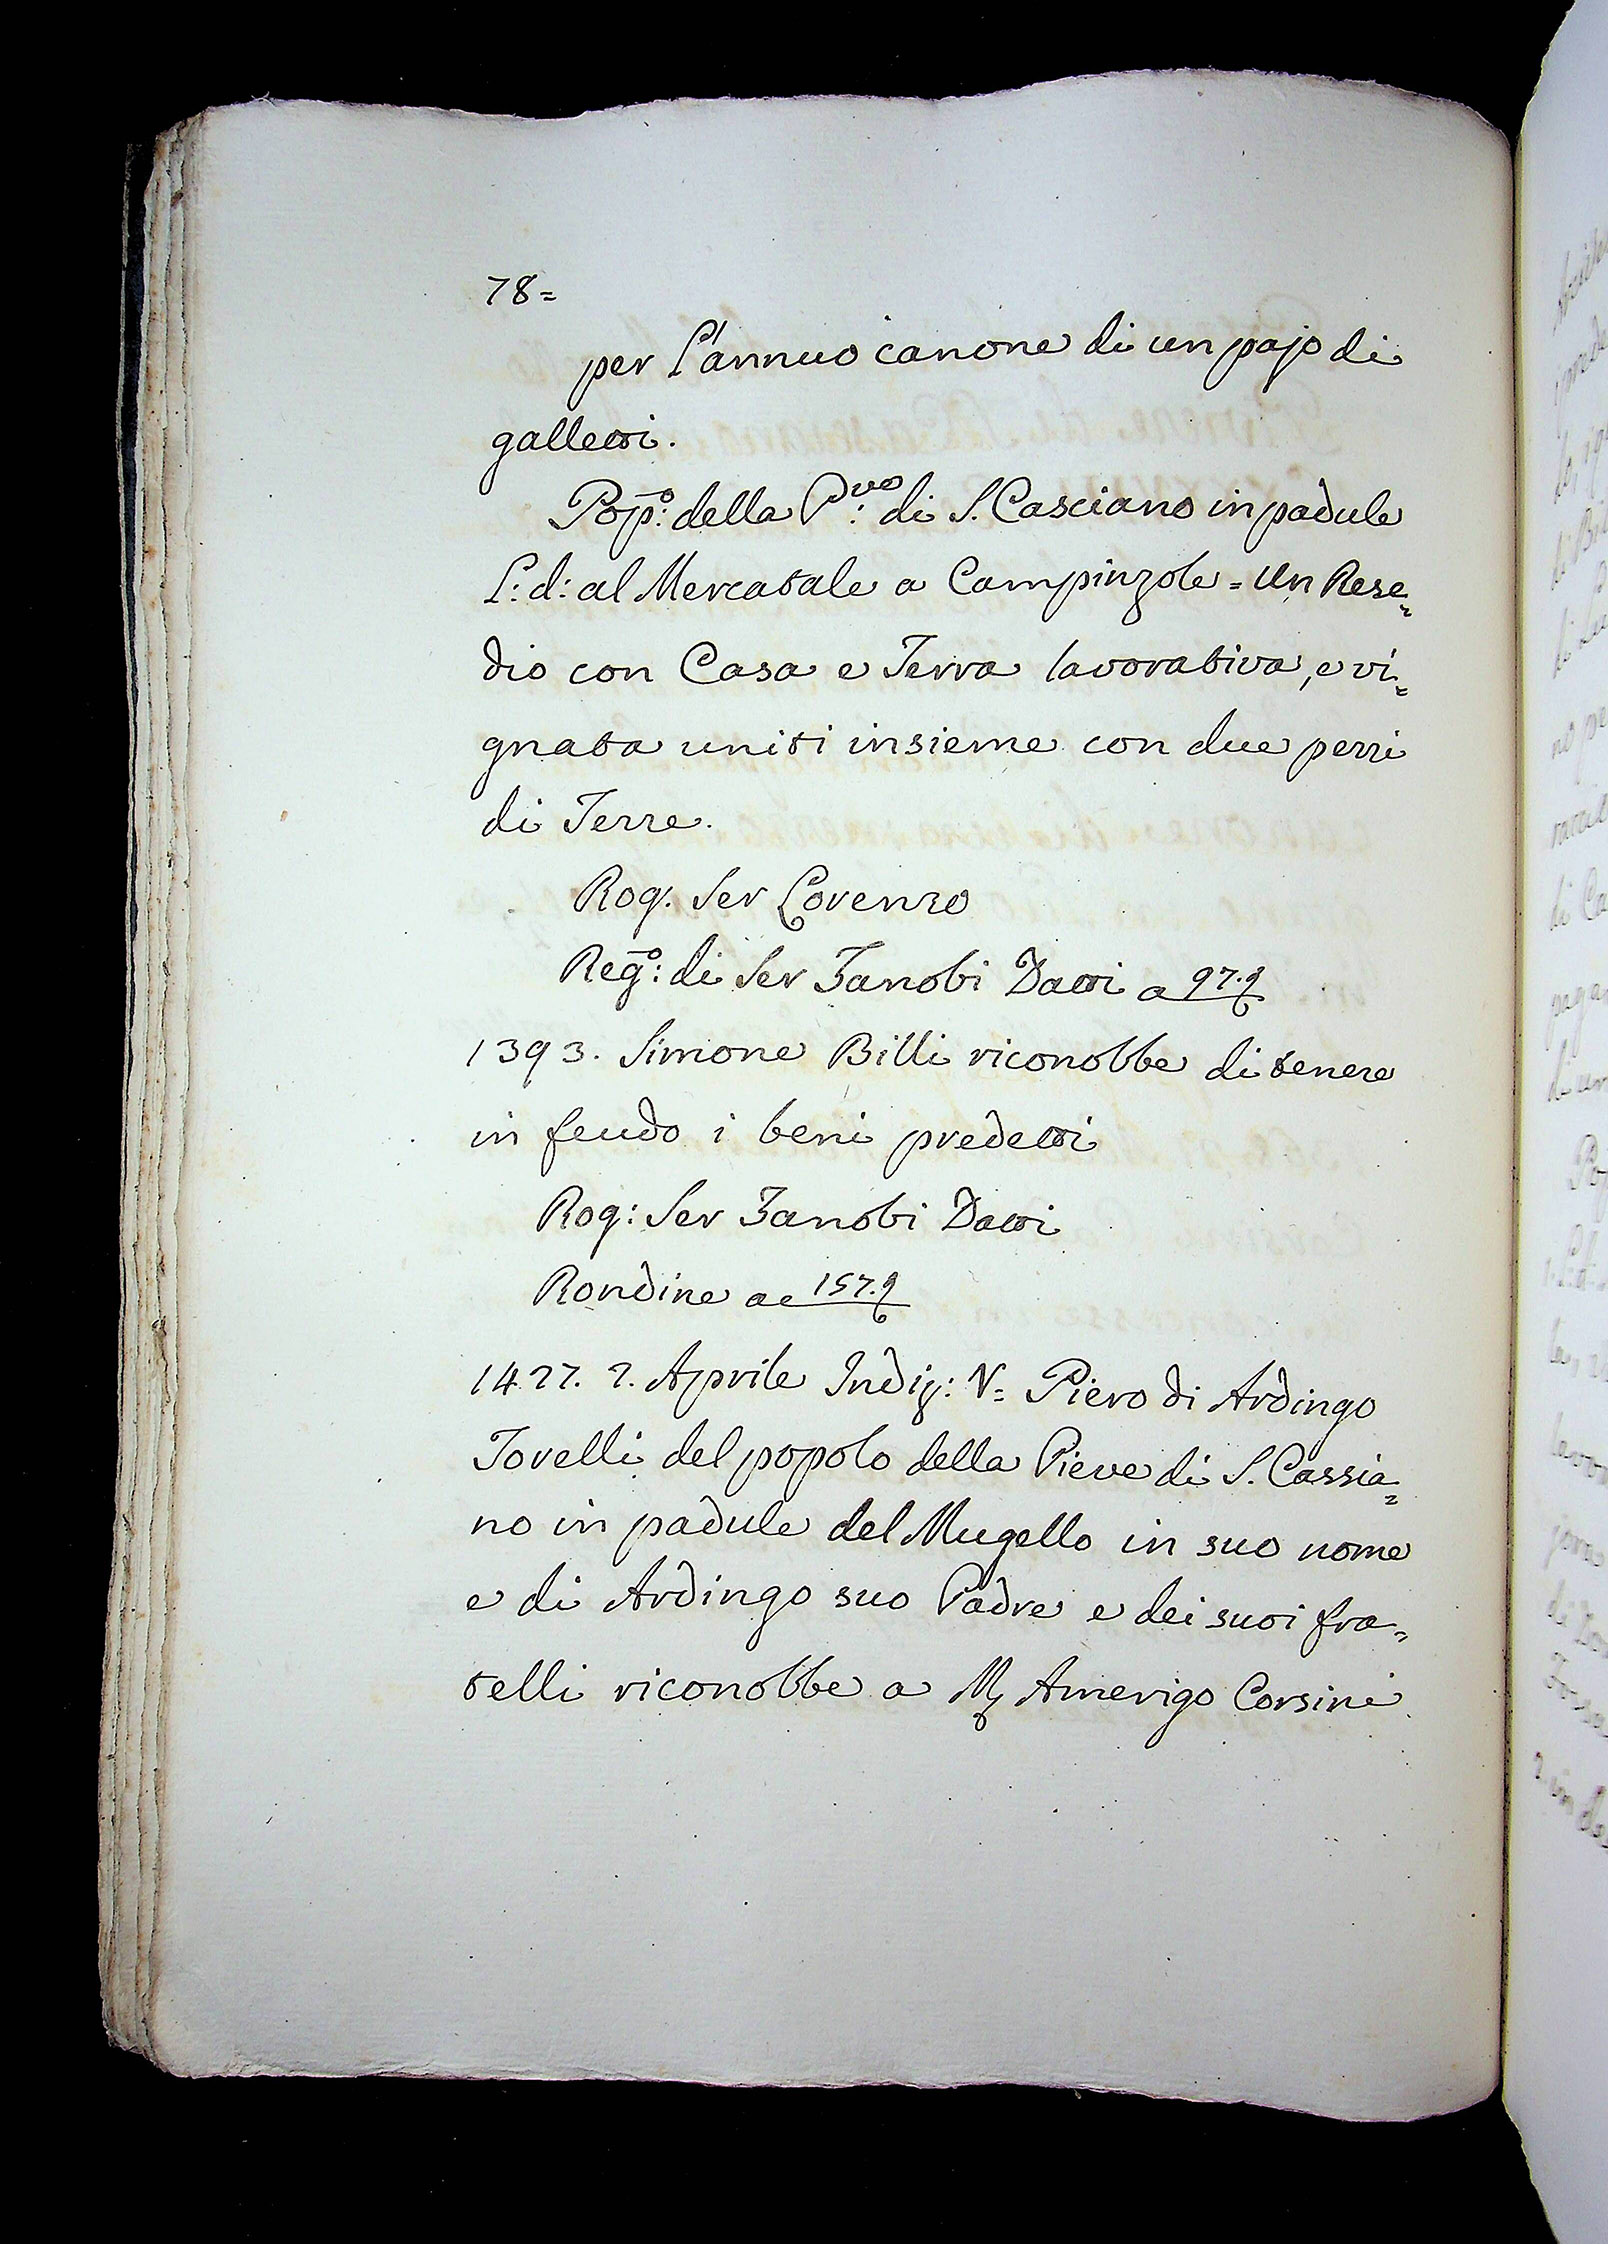 78=
per l'annuo canone di un pajo di
galletti.
Pop.º: della P.ve: di S. Casciano in padule
L: d: al Mercatale a Campinzole = Un Rese=
dio con Casa e Terra lavorativa, e vi=
gnata uniti insieme con due pezzi
di Terre.
Rog. Ser Lorenzo
Reg.º: di Ser Zanobi Datti a 97.
1393. Simone Billi riconobbe di tenere
in feudo i beni predetti
Rog: Ser Zanobi Datti
Rondine a c 157.
1427. 2. Aprile Indiz: V= Piero di Ardingo
Tovelli del popolo della Pieve di S. Cassia=
no in padule del Mugello in suo nome
e di Ardingo suo Padre e dei suoi fra=
telli riconobbe a M Amerigo Corsini